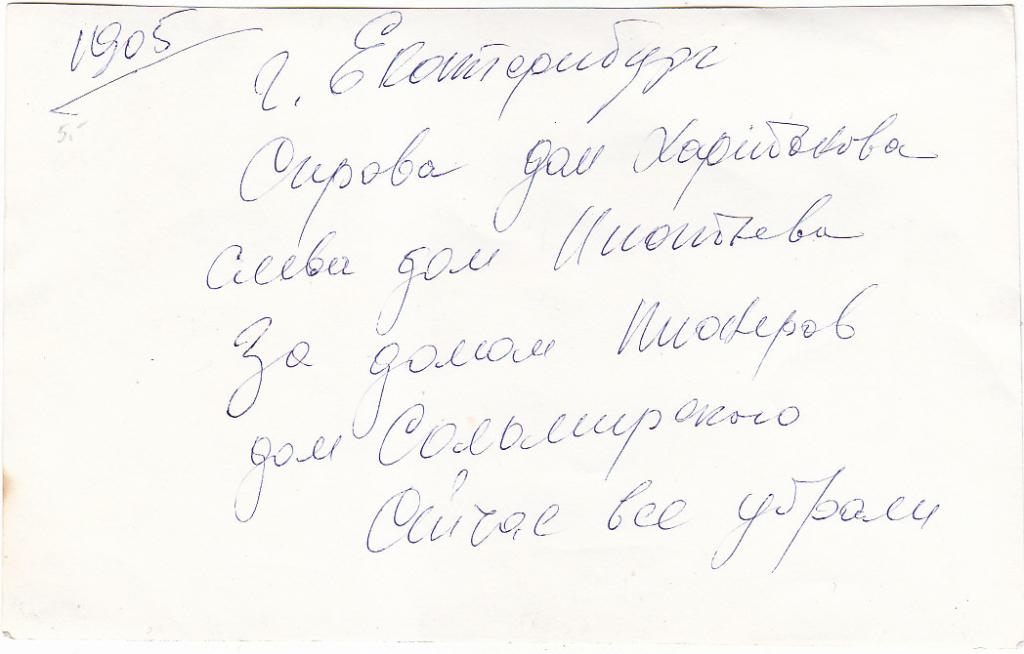 1905
г. Екатеринбург
Справа дом Харитонова
слева дом Ипатьева
За домом Пионеров
дом Соломирского
Сейчас все убрали